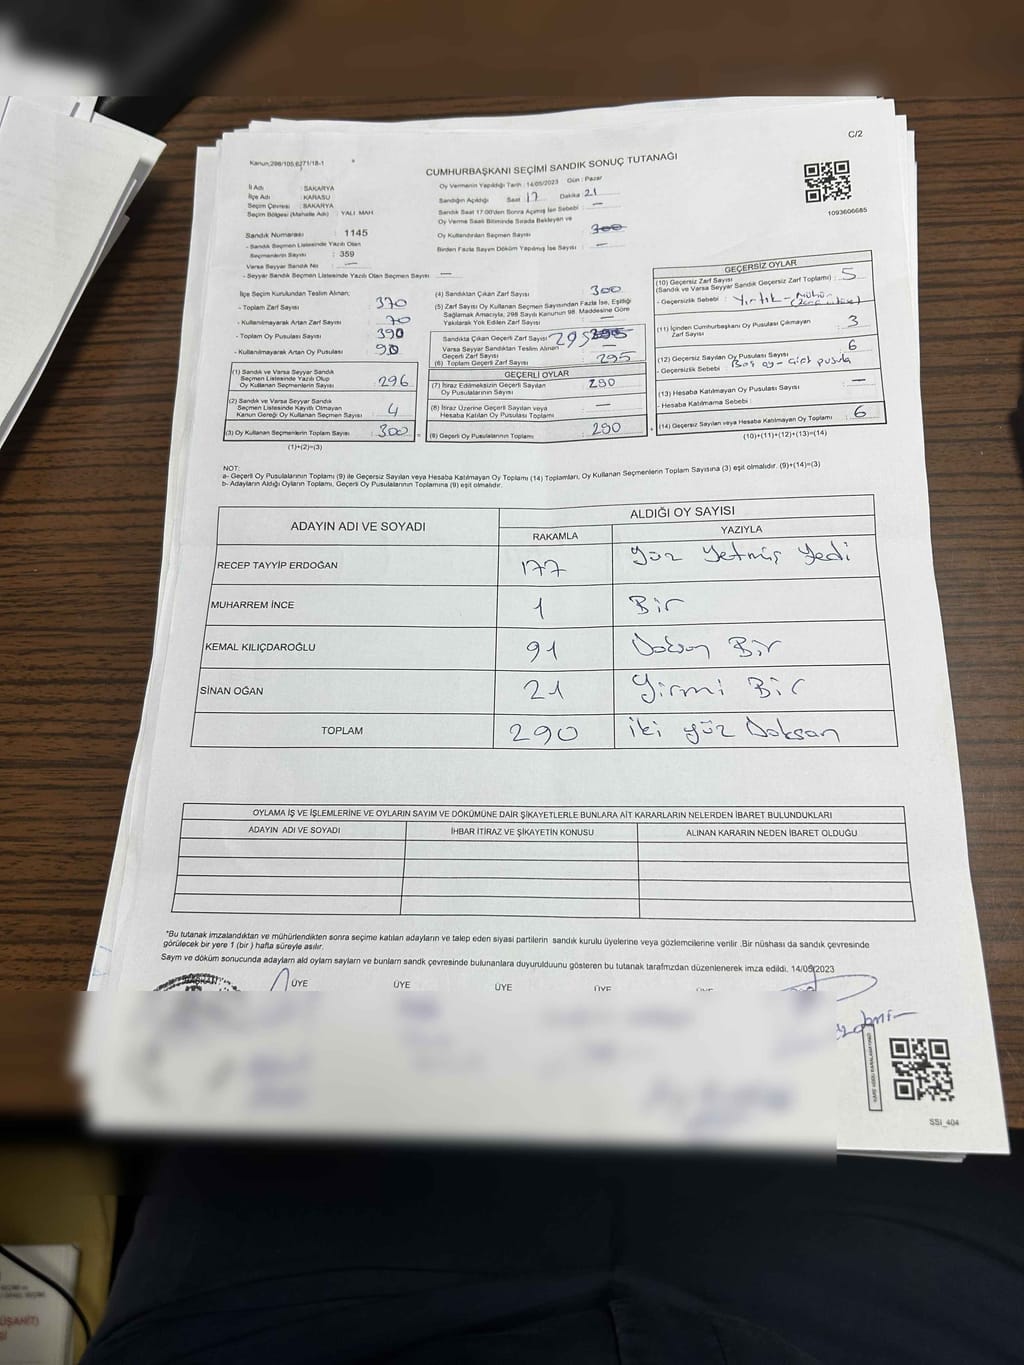 C/2
Kanun;298/105,6271/18-1
CUMHURBAŞKANI SEÇİMİ SANDIK SONUÇ TUTANAĞI
İl Adı : SAKARYA
İlçe Adı : KARASU
Seçim Çevresi : SAKARYA
Seçim Bölgesi (Mahalle Adı) : YALI MAH.
Oy Vermenin Yapıldığı Tarih : 14/05/2023 Gün : Pazar
Sandığın Açıldığı Saat 17 Dakika 21
Sandık Saat 17:00'den Sonra Açılmış İse Sebebi : —
Oy Verme Saati Bitiminde Sırada Bekleyen ve
Oy Kullandırılan Seçmen Sayısı : 300
Birden Fazla Sayım Döküm Yapılmış İse Sayısı : —
1093606685
Sandık Numarası : 1145
- Sandık Seçmen Listesinde Yazılı Olan
Seçmenlerin Sayısı : 359
Varsa Seyyar Sandık No : —
- Seyyar Sandık Seçmen Listesinde Yazılı Olan Seçmen Sayısı : —
İlçe Seçim Kurulundan Teslim Alınan;
- Toplam Zarf Sayısı : 370
- Kullanılmayarak Artan Zarf Sayısı : 70
- Toplam Oy Pusulası Sayısı : 390
- Kullanılmayarak Artan Oy Pusulası : 90
(1) Sandık ve Varsa Seyyar Sandık
Seçmen Listesinde Yazılı Olup
Oy Kullanan Seçmenlerin Sayısı : 296
(2) Sandık ve Varsa Seyyar Sandık
Seçmen Listesinde Kayıtlı Olmayan
Kanun Gereği Oy Kullanan Seçmen Sayısı : 4
(3) Oy Kullanan Seçmenlerin Toplam Sayısı : 300
(1)+(2)=(3)
(4) Sandıktan Çıkan Zarf Sayısı : 300
(5) Zarf Sayısı Oy Kullanan Seçmen Sayısından Fazla İse, Eşitliği
Sağlamak Amacıyla, 298 Sayılı Kanunun 98. Maddesine Göre
Yakılarak Yok Edilen Zarf Sayısı : —
Sandıkta Çıkan Geçerli Zarf Sayısı : 295
Varsa Seyyar Sandıktan Teslim Alınan
Geçerli Zarf Sayısı : —
(6) Toplam Geçerli Zarf Sayısı : 295
GEÇERLİ OYLAR
(7) İtiraz Edilmeksizin Geçerli Sayılan
Oy Pusulalarının Sayısı : 290
(8) İtiraz Üzerine Geçerli Sayılan veya
Hesaba Katılan Oy Pusulası Toplamı : —
(9) Geçerli Oy Pusulalarının Toplamı : 290
GEÇERSİZ OYLAR
(10) Geçersiz Zarf Sayısı
(Sandık ve Varsa Seyyar Sandık Geçersiz Zarf Toplamı) : 5
- Geçersizlik Sebebi : Yırtık - mühür
(11) İçinden Cumhurbaşkanı Oy Pusulası Çıkmayan
Zarf Sayısı : 3
(12) Geçersiz Sayılan Oy Pusulası Sayısı : 6
- Geçersizlik Sebebi : Boş oy - pusula
(13) Hesaba Katılmayan Oy Pusulası Sayısı : —
- Hesaba Katılmama Sebebi :
(14) Geçersiz Sayılan veya Hesaba Katılmayan Oy Toplamı : 6
(10)+(11)+(12)+(13)=(14)
NOT:
a- Geçerli Oy Pusulalarının Toplamı (9) ile Geçersiz Sayılan veya Hesaba Katılmayan Oy Toplamı (14) Toplamları, Oy Kullanan Seçmenlerin Toplam Sayısına (3) eşit olmalıdır. (9)+(14)=(3)
b- Adayların Aldığı Oyların Toplamı, Geçerli Oy Pusulalarının Toplamına (9) eşit olmalıdır.
ADAYIN ADI VE SOYADI ALDIĞI OY SAYISI
RAKAMLA YAZIYLA
RECEP TAYYİP ERDOĞAN 177 Yüz Yetmiş Yedi
MUHARREM İNCE 1 Bir
KEMAL KILIÇDAROĞLU 91 Doksan Bir
SİNAN OĞAN 21 Yirmi Bir
TOPLAM 290 iki yüz Doksan
OYLAMA İŞ VE İŞLEMLERİNE VE OYLARIN SAYIM VE DÖKÜMÜNE DAİR ŞİKAYETLERLE BUNLARA AİT KARARLARIN NELERDEN İBARET BULUNDUKLARI
ADAYIN ADI VE SOYADI İHBAR İTİRAZ VE ŞİKAYETİN KONUSU ALINAN KARARIN NEDEN İBARET OLDUĞU
*Bu tutanak imzalandıktan ve mühürlendikten sonra seçime katılan adayların ve talep eden siyasi partilerin sandık kurulu üyelerine veya gözlemcilerine verilir .Bir nüshası da sandık çevresinde
görülecek bir yere 1 (bir ) hafta süreyle asılır.
Saym ve döküm sonucunda adayların ald oylarn saylarn ve bunlarn sandk çevresinde bulunanlara duyurulduunu gösteren bu tutanak tarafmzdan düzenlenerek imza edildi. 14/05/2023
BAŞKAN ÜYE ÜYE ÜYE ÜYE ÜYE
SSİ_404
ÜŞAHİT)